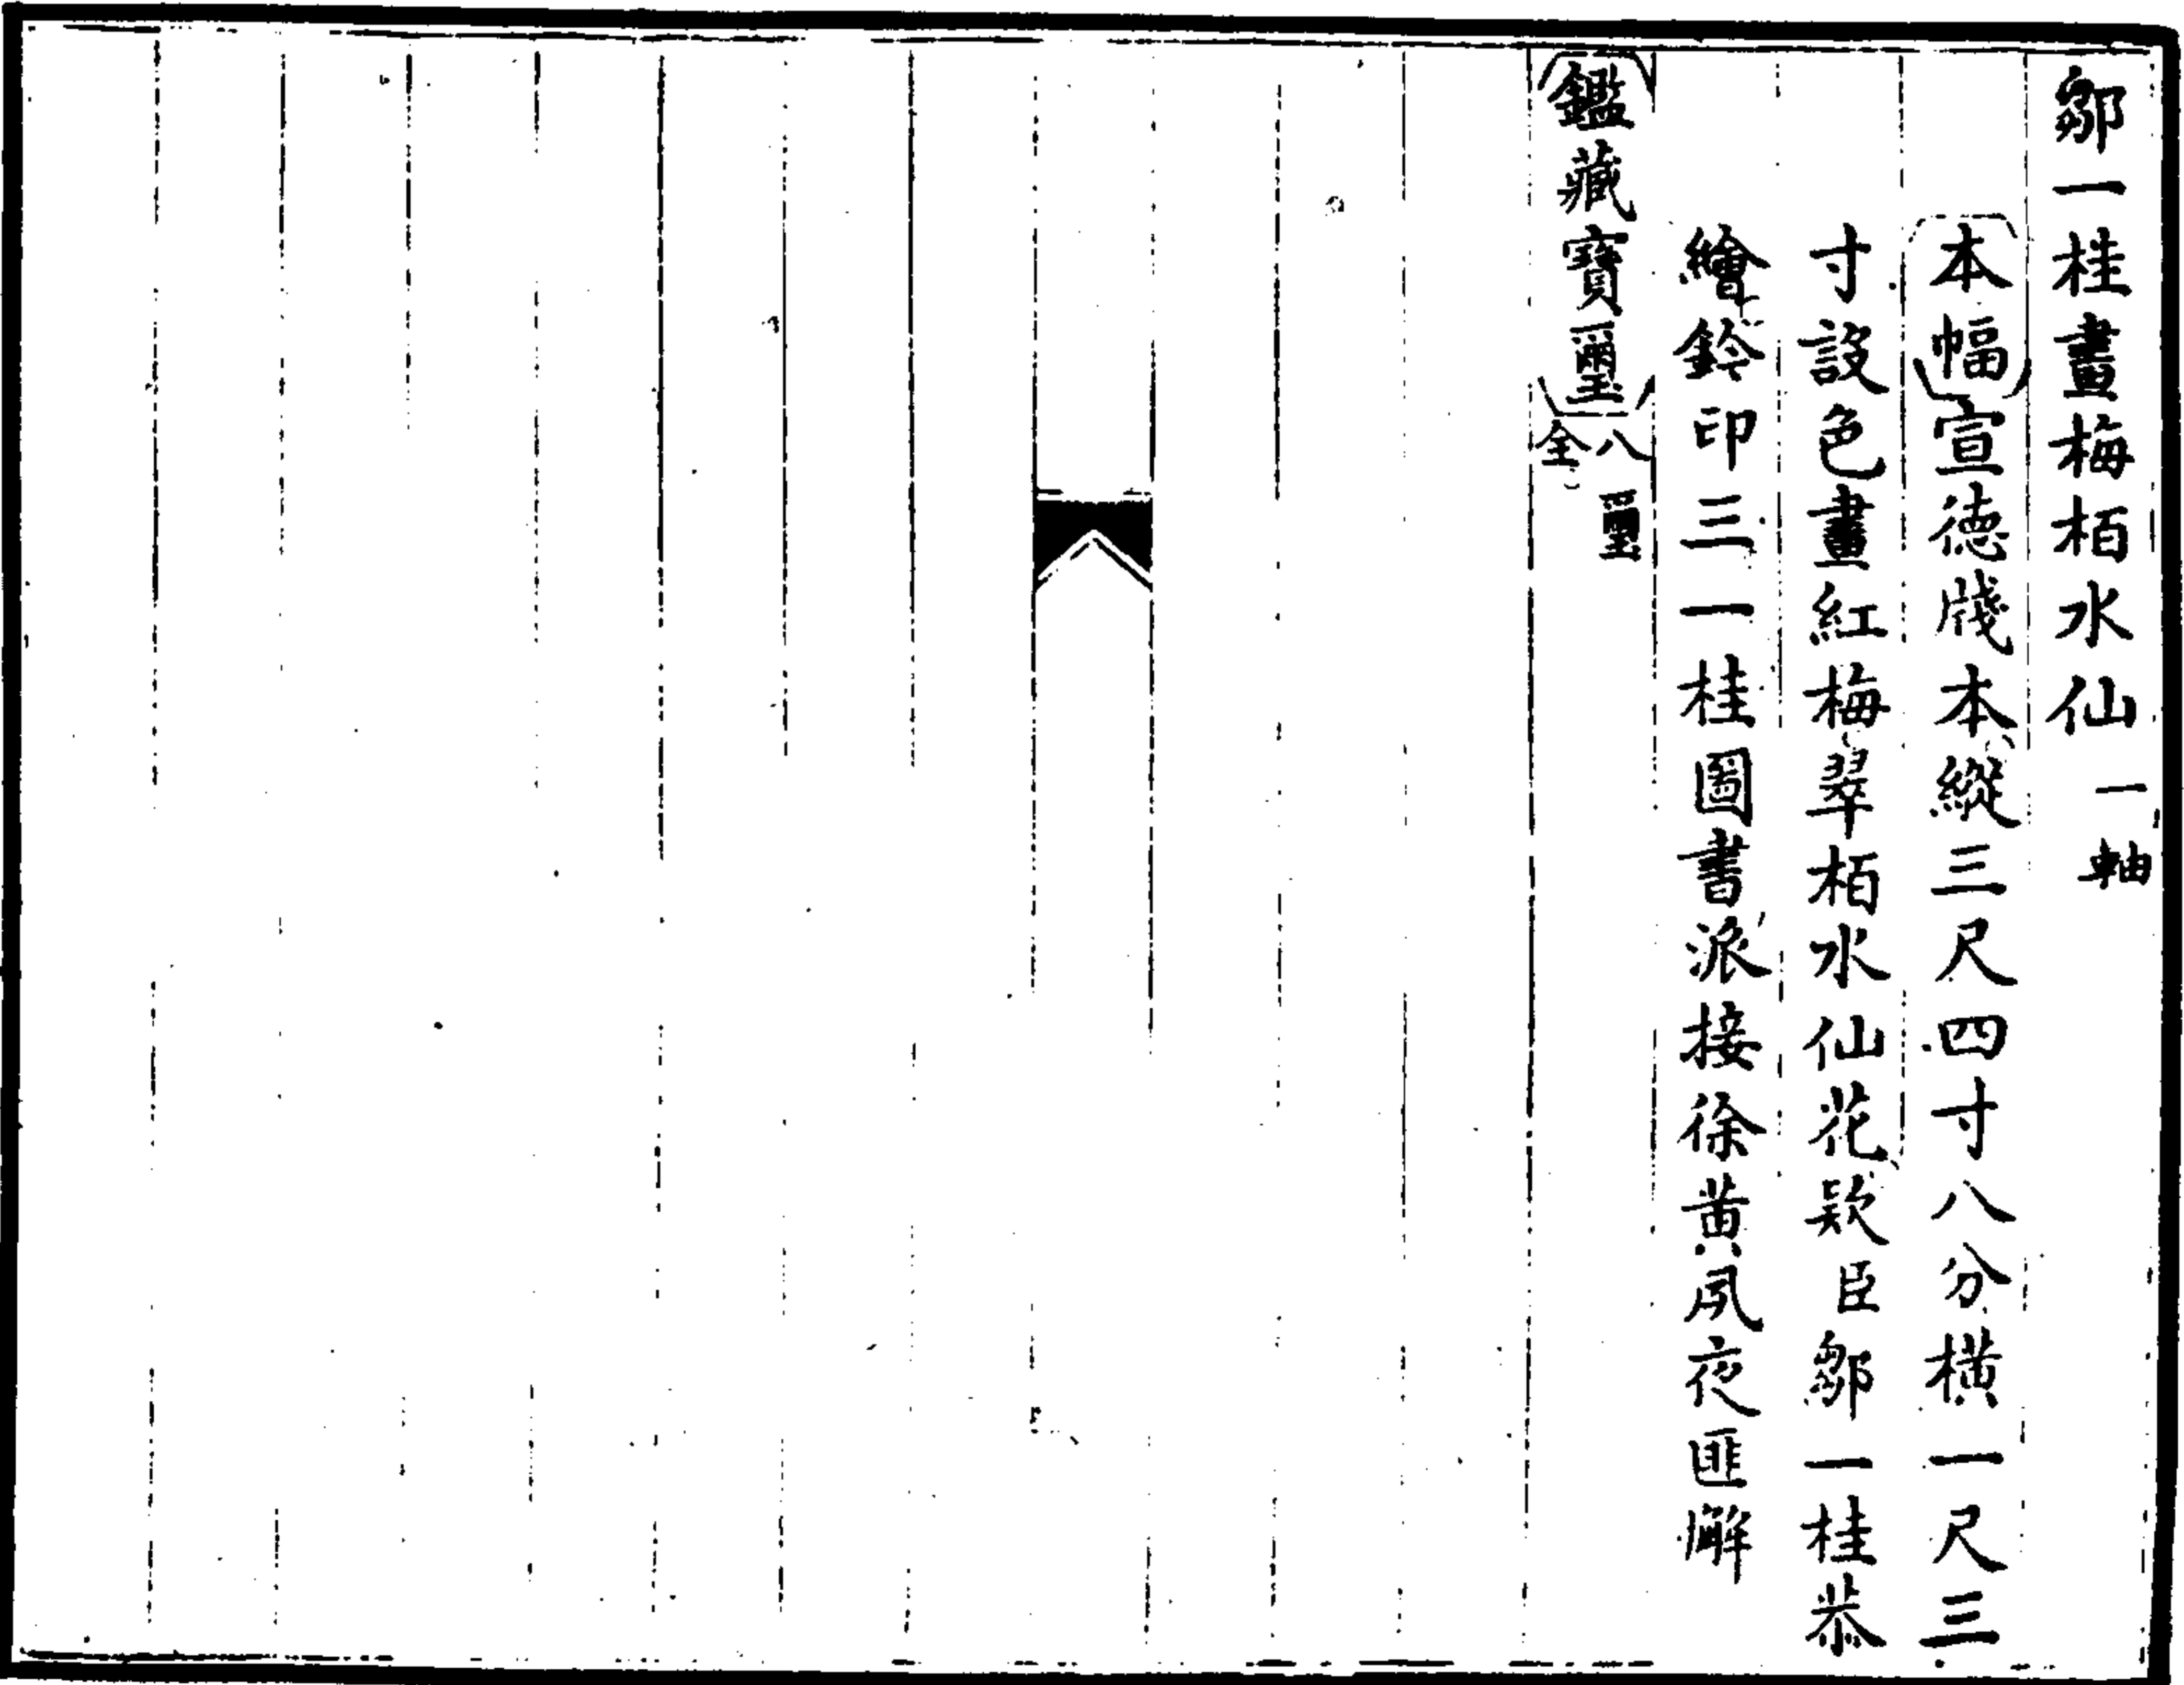 鄒一桂畫梅栢水仙一軸
本幅宣德牋本縱三尺四寸八分橫一尺三
寸設色畫紅梅翠栢水仙花欵臣鄒一桂恭
繪鈐印三一桂圖書派接徐黄夙夜匪懈
鑑藏寶璽八璽全